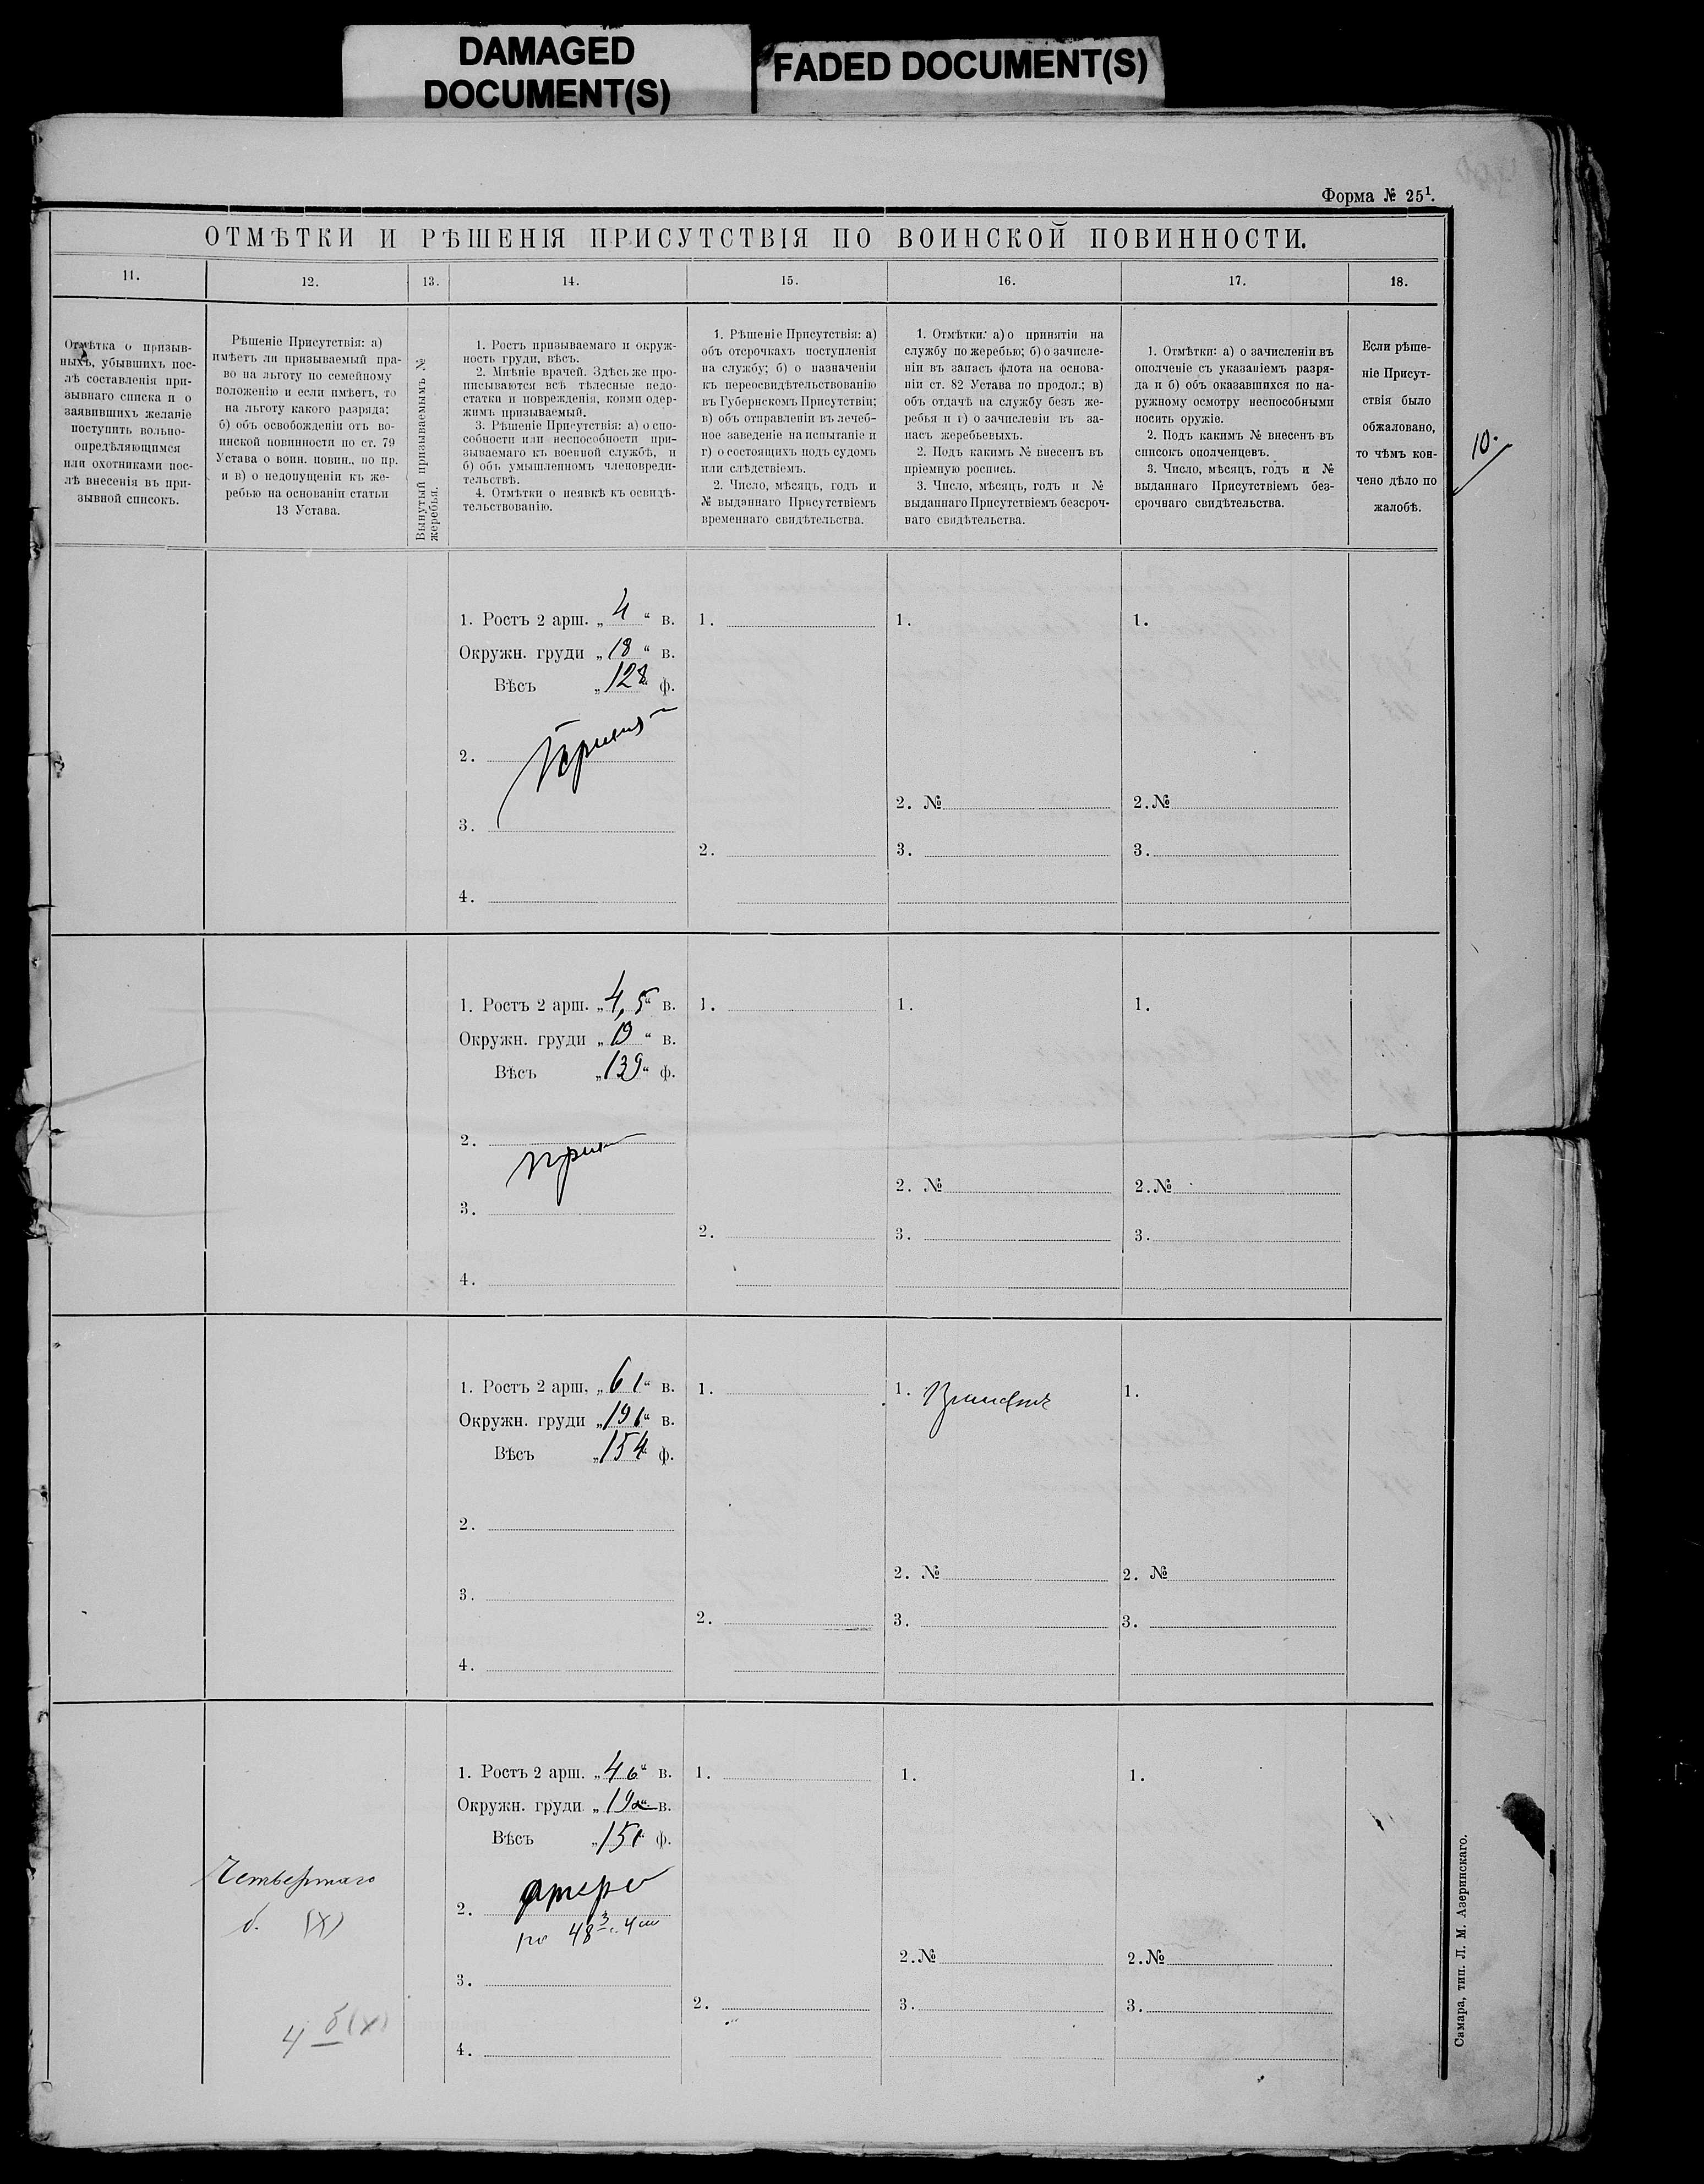 DAMAGED
DOCUMENT(S)
FADED DOCUMENT(S)
Форма № 25¹.
ОТМѢТКИ И РѢШЕНІЯ ПРИСУТСТВІЯ ПО ВОИНСКОЙ ПОВИННОСТИ.
11. 12. 13. 14. 15. 16. 17. 18.
Отмѣтка о призыв-
ныхъ, убывшихъ пос-
лѣ составленія при-
зывнаго списка и о
заявившихъ желаніе
поступить вольно-
опредѣляющимся
или охотниками пос-
лѣ внесенія въ при-
зывной списокъ.
Рѣшеніе Присутствія: а)
имѣетъ ли призываемый пра-
во на льготу по семейному
положенію и если имѣетъ, то
на льготу какого разряда;
б) объ освобожденіи отъ во-
инской повинности по ст. 79
Устава о воин. повин., по пр.
и в) о недопущеніи къ же-
ребью на основаніи статьи
13 Устава.
Вынутый призываемымъ №
жеребья.
1. Ростъ призываемаго и окруж-
ность груди, вѣсъ.
2. Мнѣніе врачей. Здѣсь же про-
писываются всѣ тѣлесные недо-
статки и поврежденія, коими одер-
жимъ призываемый.
3. Рѣшеніе Присутствія: а) о спо-
собности или неспособности при-
зываемаго къ военной службѣ, и
б) объ умышленномъ членовреди-
тельствѣ.
4. Отмѣтки о неявкѣ къ освидѣ-
тельствованію.
1. Рѣшеніе Присутствія: а)
объ отсрочкахъ поступленія
на службу; б) о назначеніи
къ переосвидѣтельствованію
въ Губернскомъ Присутствіи;
в) объ отправленіи въ лечеб-
ное заведеніе на испытаніе и
г) о состоящихъ подъ судомъ
или слѣдствіемъ.
2. Число, мѣсяцъ, годъ и
№ выданнаго Присутствіемъ
временнаго свидѣтельства.
1. Отмѣтки: а) о принятіи на
службу по жеребью; б) о зачисле-
ніи въ запасъ флота на основа-
ніи ст. 82 Устава по продол.; в)
объ отдачѣ на службу безъ же-
ребья и г) о зачисленіи въ за-
пасъ жеребьевыхъ.
2. Подъ какимъ № внесенъ въ
пріемную роспись.
3. Число, мѣсяцъ, годъ и №
выданнаго Присутствіемъ безсроч-
наго свидѣтельства.
1. Отмѣтки: а) о зачисленіи въ
ополченіе съ указаніемъ разря-
да и б) объ оказавшихся по на-
ружному осмотру неспособными
носить оружіе.
2. Подъ какимъ № внесенъ въ
списокъ ополченцевъ.
3. Число, мѣсяцъ, годъ и №
выданнаго Присутствіемъ без-
срочнаго свидѣтельства.
Если рѣше-
ніе Присут-
ствія было
обжаловано,
то чѣмъ кон-
чено дѣло по
жалобѣ.
10.
1. Ростъ 2 арш. „ 4 “ в. 1. 1. 1.
Окружн. груди „ 18 “ в.
Вѣсъ „ 128 “ ф.
2.
2. № 2. №
3.
2. 3. 3.
4.
1. Ростъ 2 арш. „ 4,5 “ в. 1. 1. 1.
Окружн. груди „ 19 “ в.
Вѣсъ „ 139 “ ф.
2.
2. № 2. №
3.
2. 3. 3.
4.
1. Ростъ 2 арш. „ 6 1 “ в. 1. 1. 1.
Окружн. груди „ 19 1 “ в.
Вѣсъ „ 154 “ ф.
2.
2. № 2. №
3.
2. 3. 3.
4.
1. Ростъ 2 арш. „ 4 6 “ в. 1. 1. 1.
Окружн. груди „ 19 “ в.
Вѣсъ „ 151 “ ф.
Четвертаго
б. (X)
2.
по 48
2. № 2. №
3.
2. 3. 3.
4 б (X)
4.
Самара, тип. Л. М. Азеринскаго.